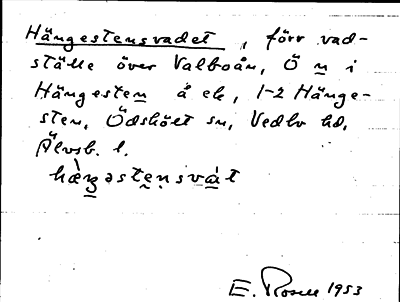 Hängestensvadet, förr vad-
ställe över Valboån, Ö n i
Hängesten å ek, 1-2 Hänge-
sten, Ödskölt sn, Vedbo hd,
Älvsb. l.
hæ̀ŋəstẹnsvát
E. Rosell 1953